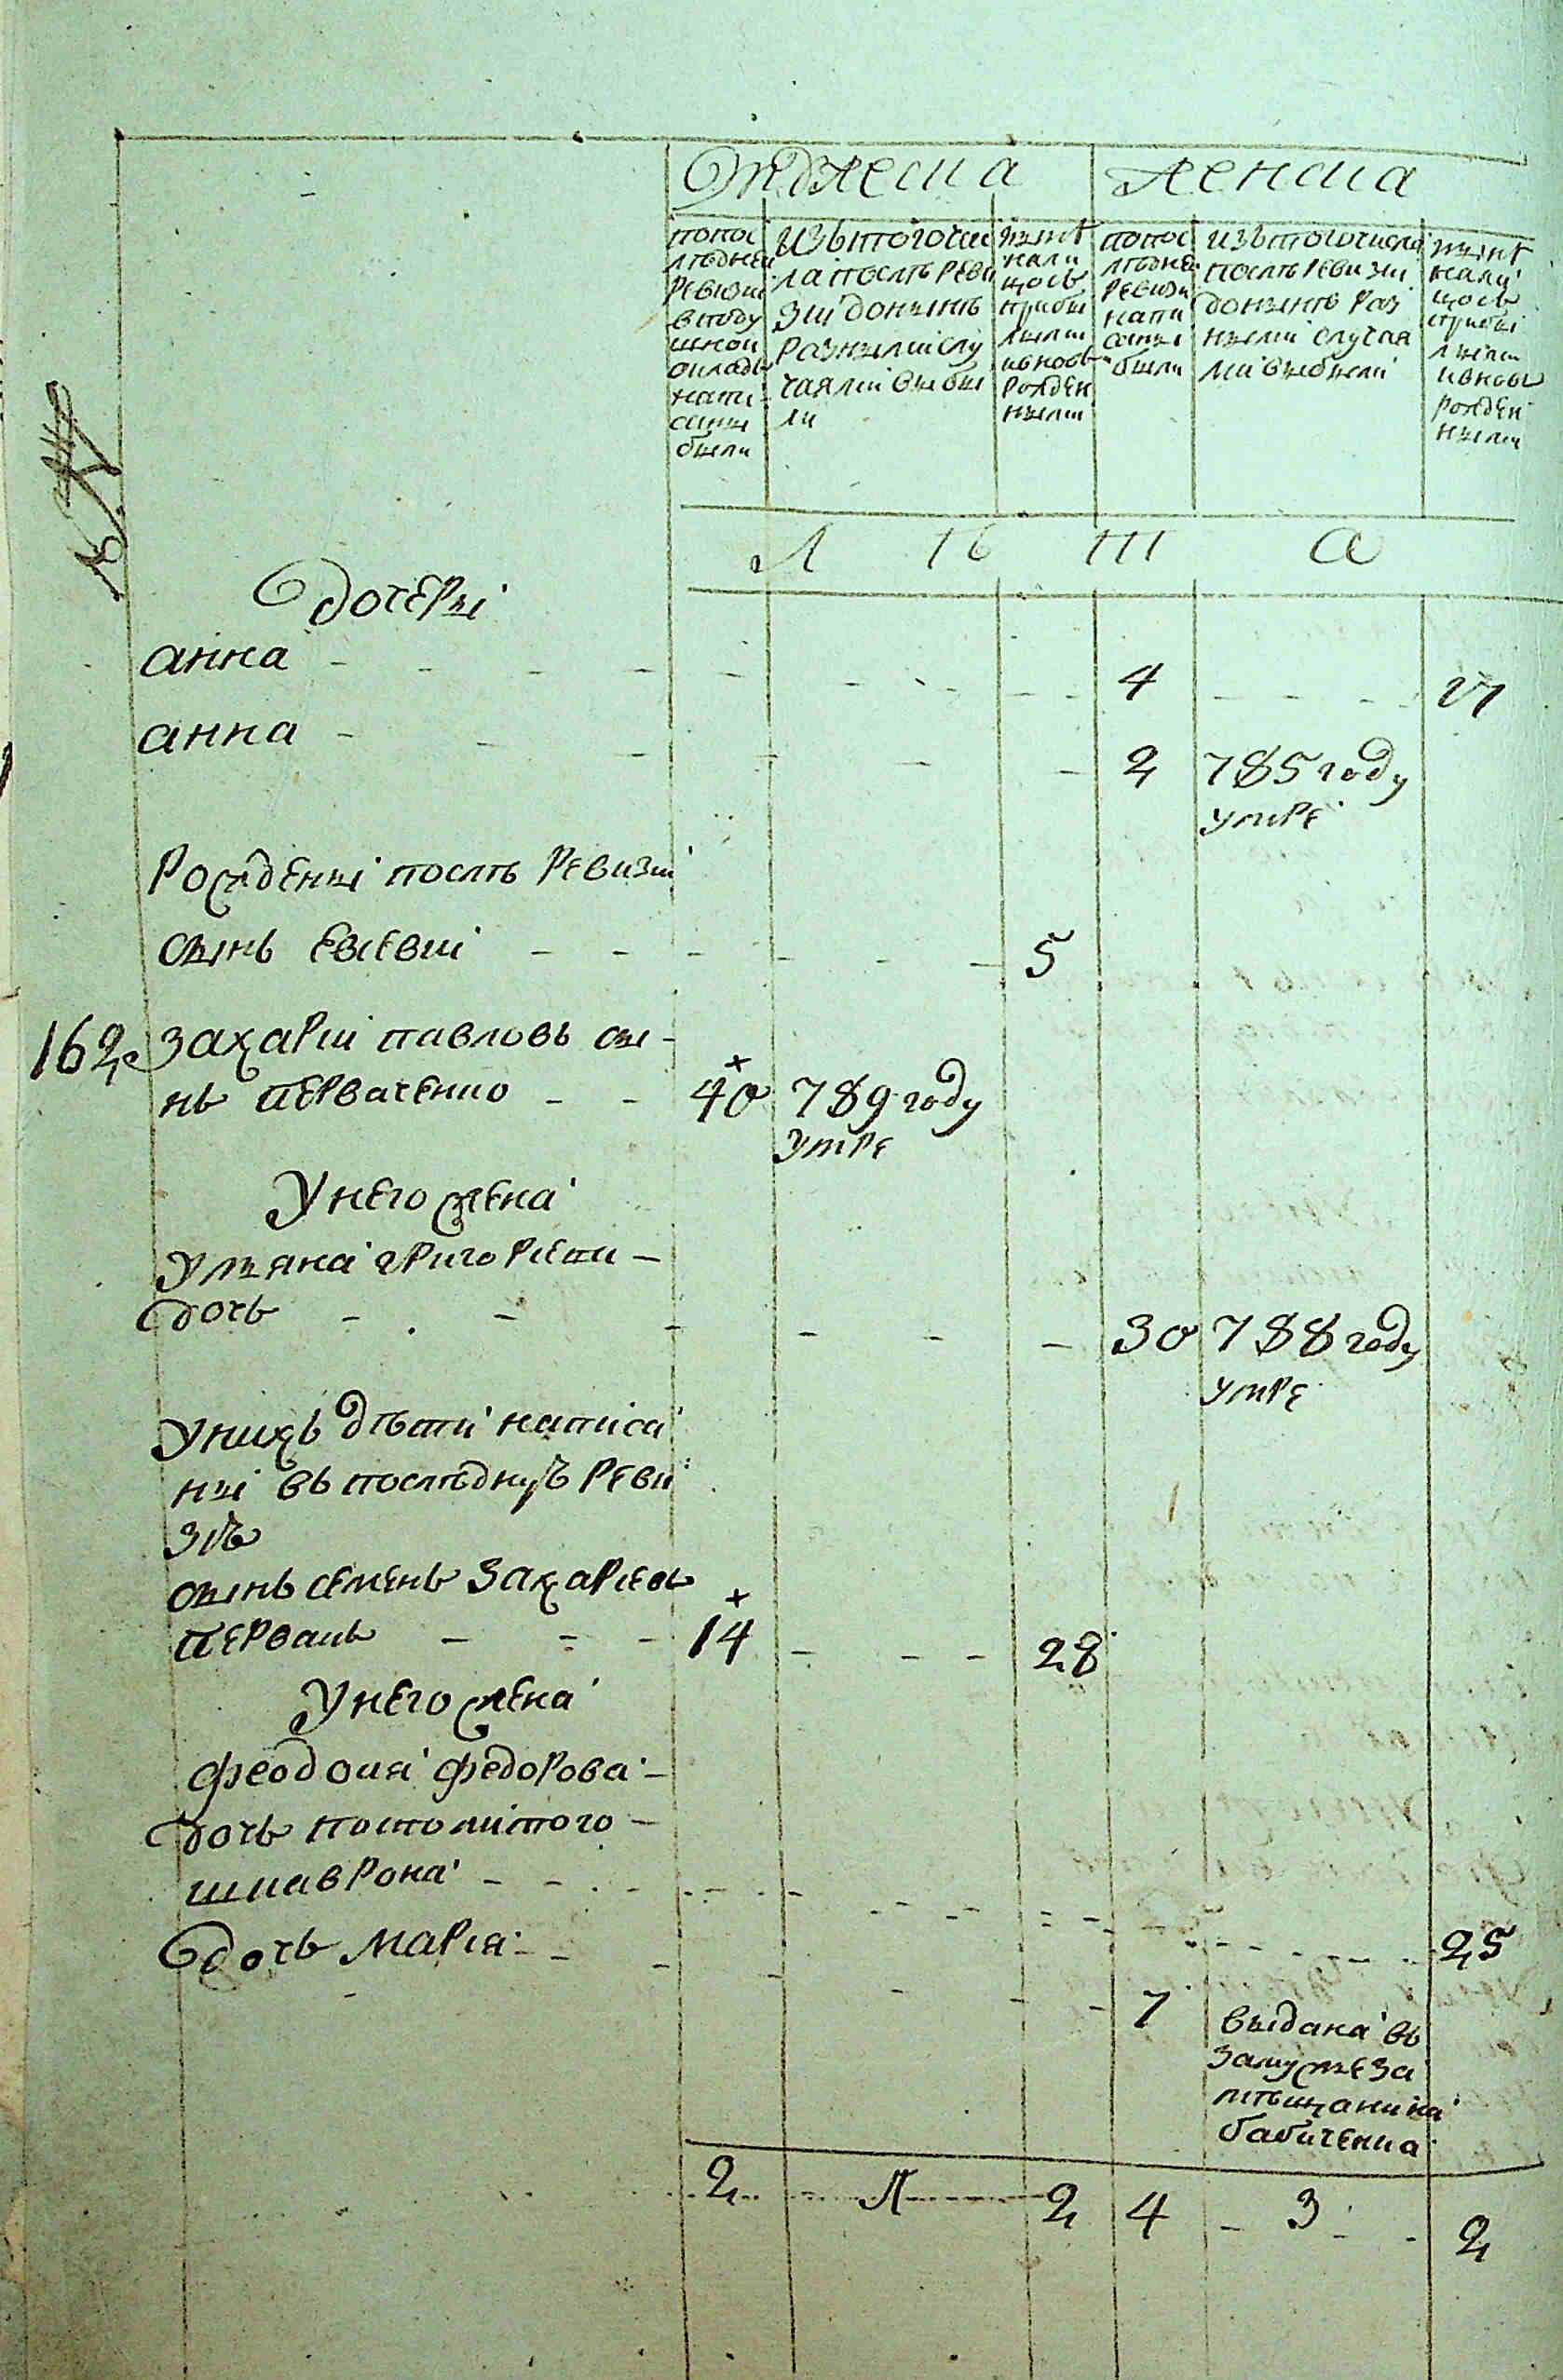 Мужеска женска
попос
лѣдней
ревизии
вподу
шной
окладъ
напи
саны
были
изътогочис
ла послѣ реви
зии донынѣ
разными слу
чаями выбы
ли
нынѣ
нали
цосъ
прибы
лыми
ивновь
рожден
ными
попос
лѣдней
ревизи
напи
саны
были
изътогочисла
послѣ ревизии
донынѣ раз
ными случая
ми выбыли
нынѣ
нали
цосъ
прибы
лыми
ивновь
рожден
ными
л ѣ т а
дочеры
анна 4 17
анна 2 785 году
умре
рожденны послѣ ревизии
сынъ евсевии 5
162 захарии павловъ сы
нъ перваченко 40 789 году
умре
У него жена
уляна григориева
дочь 30 788 году
умре
у нихъ дѣти написа
ны въ последнуѣ реви
зіѣ
сынъ семенъ захариевъ
первакъ 14 28
У него жена
феодосия федорова
дочь посполитого
шкаврона 25
дочь мария 7 выдана въ
замужеза
мѣщанина
бабиченка
2 1 2 4 3 2